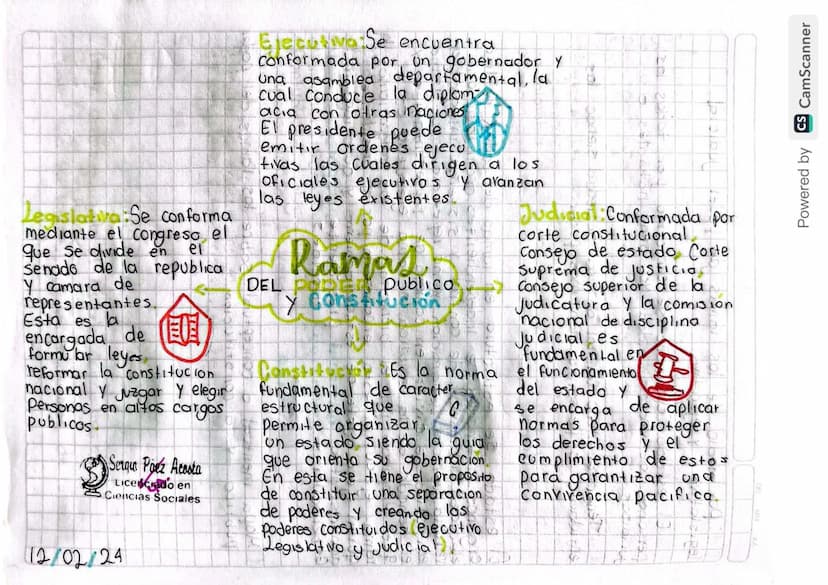 Ejecutiva: Se encuentra
conformada por un gobernador y
una asamblea departamental, la
cual conduce la diplom
acia con otras naciones
El presidente puede
emitir ordenes ejecu
tivas las cuales dirigen a los
oficiales ejecutivos y avanzan
las leyes existentes.
Legislativa: Se conforma
mediante el congreso, el
que se divide en el
senado de la republica
y camara de
representantes.
Esta es la
encargada de
formular leyes,
reformar la constitucion
nacional y juzgar y elegir
personas en altos cargos
publicos.
Ramas
DEL PODER Publico
y Constitución
Judicial: Conformada por
corte constitucional,
consejo de estado, Corte
suprema de justicia,
consejo superior de la
judicatura y la comision
nacional de disciplina
judicial, es
fundamental en
el funcionamiento
del estado y
se encarga de aplicar
normas para proteger
los derechos y el
cumplimiento de estos
para garantizar una
convivencia pacifica.
Constitución: Es la norma
fundamental de caracter
estructural que
permite organizar
un estado, siendo la guia
que orienta su gobernación.
En esta se tiene el proposito
de constituir una separacion
de poderes y creando los
poderes constituidos (ejecutivo
Legislativo y judicial).
Sergio Páez Acosta
Licenciado en
Ciencias Sociales
12/02/24
Powered by CS CamScanner